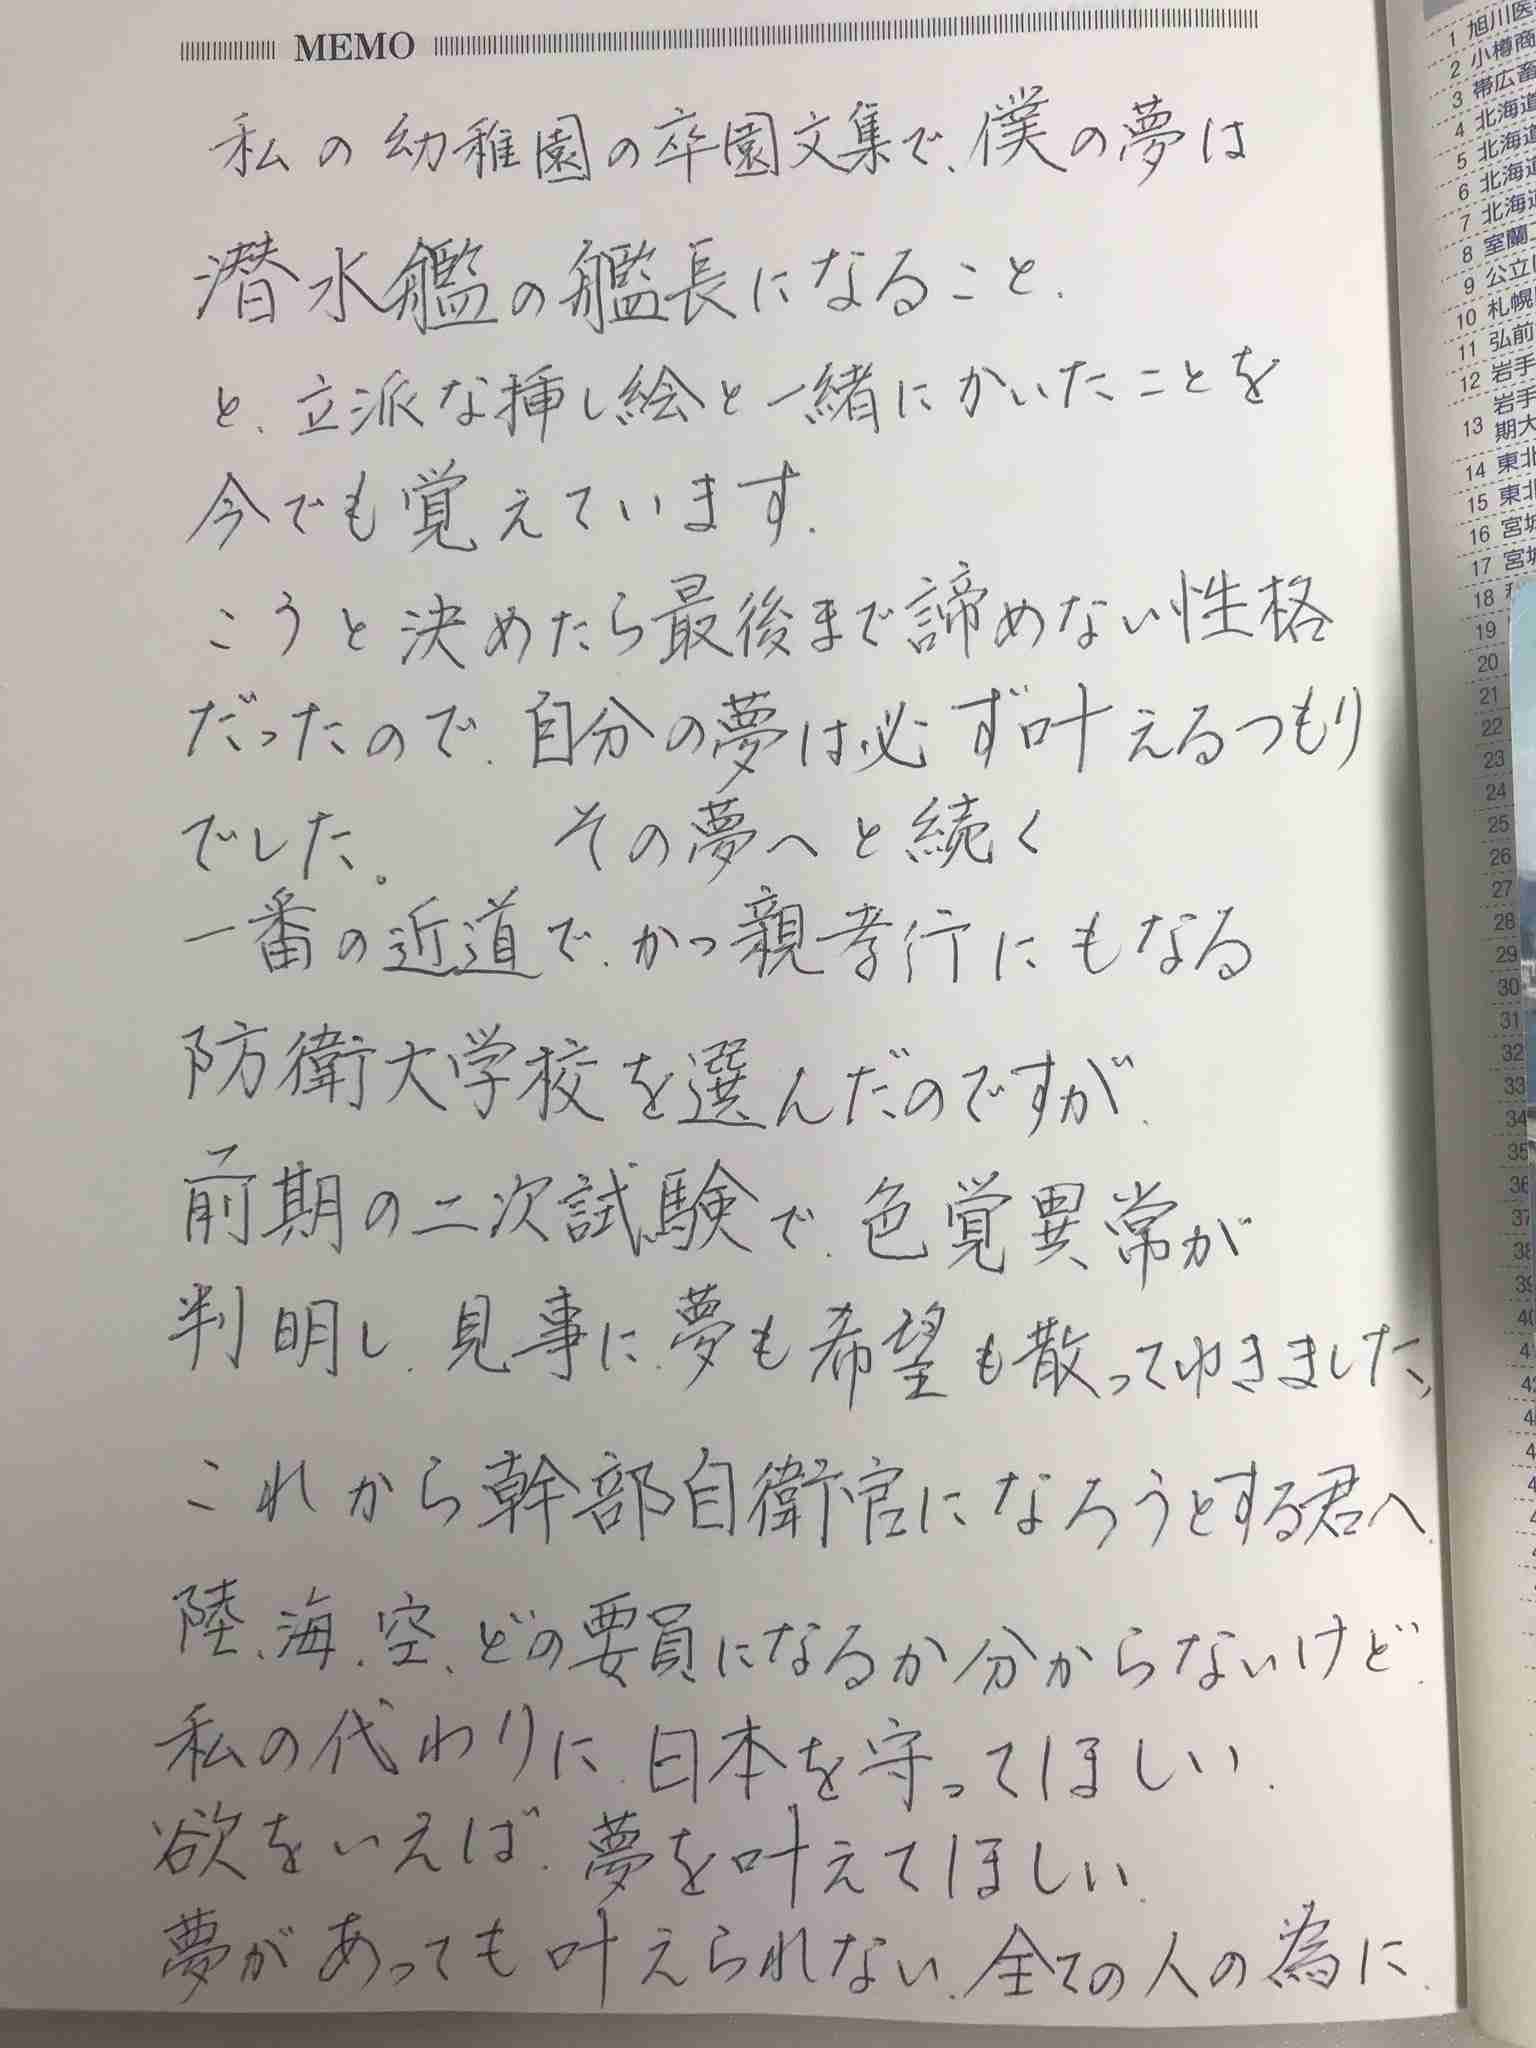 MEMO
私の幼稚園の卒園文集で、僕の夢は
潜水艦の艦長になること、
と、立派な挿し絵と一緒にかいたことを
今でも覚えています。
こうと決めたら最後まで諦めない性格
だったので、自分の夢は必ず叶えるつもり
でした。 その夢へと続く
一番の近道で、かつ親孝行にもなる
防衛大学校を選んだのですが、
前期の二次試験で、色覚異常が
判明し、見事に、夢も希望も散ってゆきました、
これから幹部自衛官になろうとする君へ、
陸、海、空、どの要員になるか分からないけど、
私の代わりに、日本を守ってほしい、
欲をいえば、夢を叶えてほしい、
夢があっても叶えられない、全ての人の為に、
1 旭川医
2 小樽商
3 帯広畜
4 北海道
5 北海道
6 北海道
7 北海道
8 室蘭工
9 公立
10 札幌
11 弘前
12 岩手
13 岩手
期大
14 東北
15 東北
16 宮城
17 宮城
18
19
20
21
22
23
24
25
26
27
28
29
30
31
32
33
34
35
36
37
38
39
40